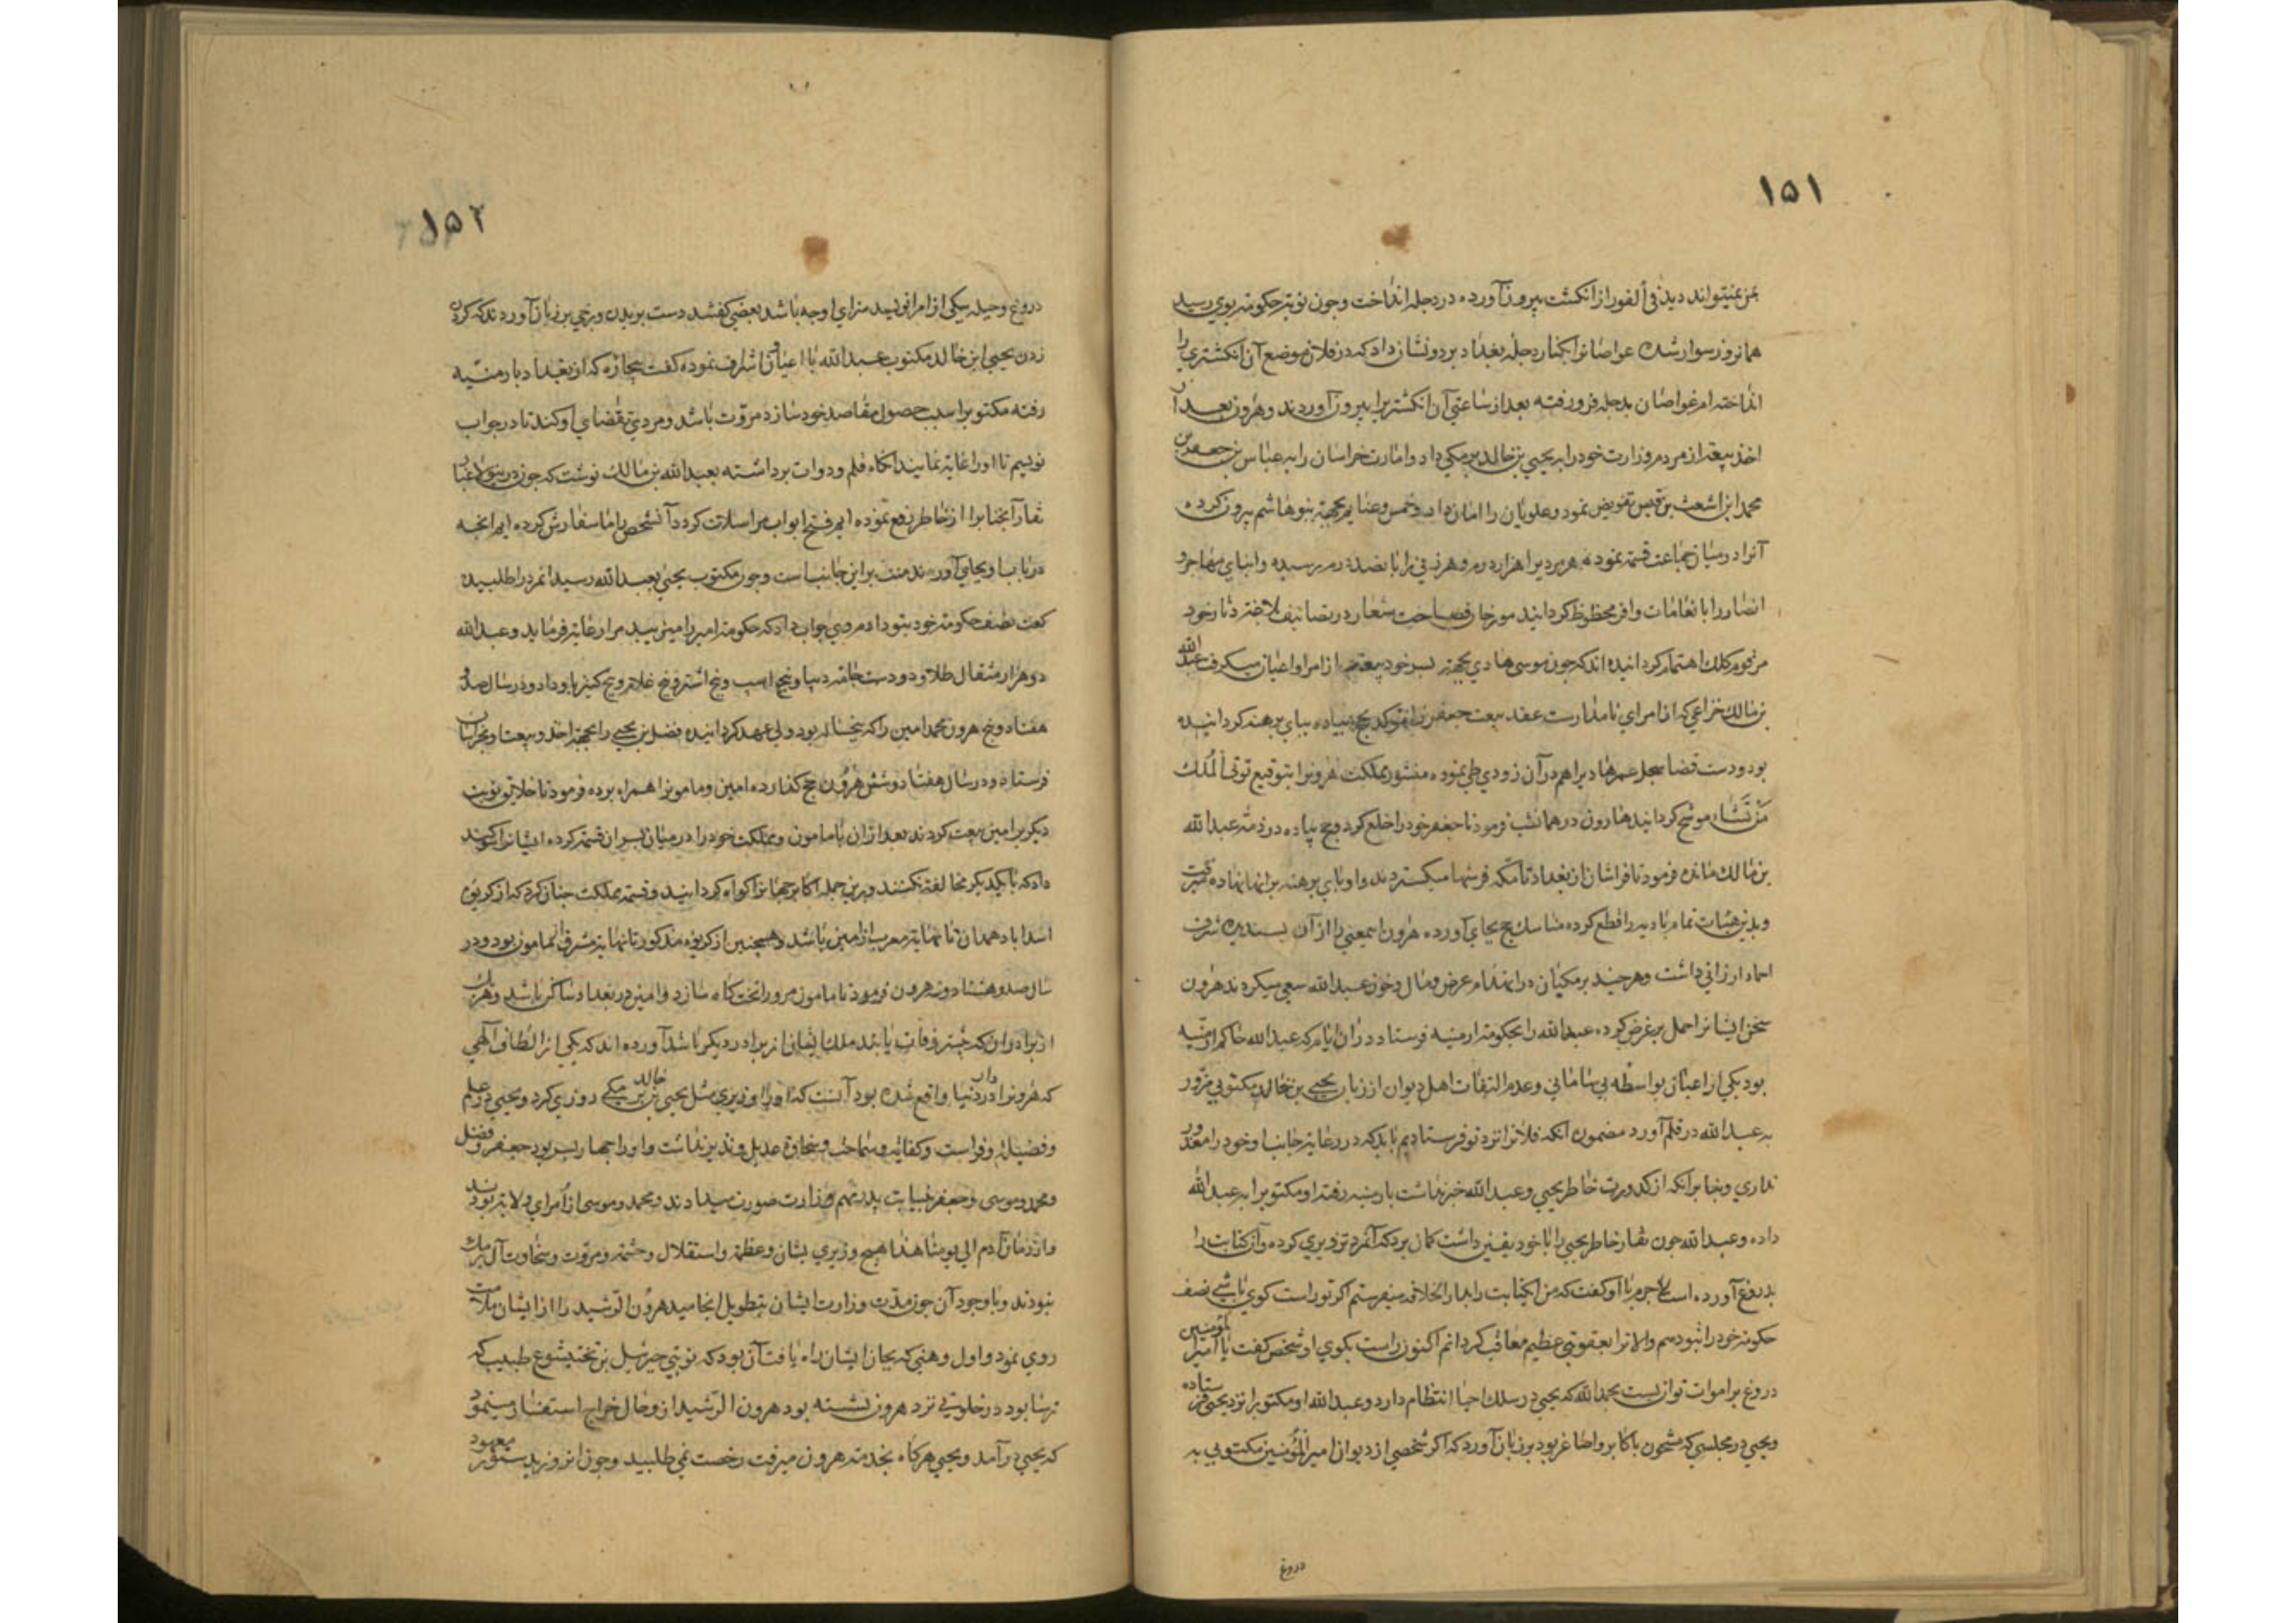 ۱۵۱
بمن نمیتواند دید فی الفور از انکشت بیرون آورده در دجله انداخت و چون نوبتر حکومته بوی رسید
همانروز سوار شده غواصانرا بکنار دجله بغداد برد و نشان داد که در فلان موضع آن انکشتری را
انداخته ام غواصان بدجله فرو رفته بعد از ساعتی آن انکشتریرا بیرون آوردند و هرون بعد از
اخذ بیعته از مردم وزارت خود را به یحیی بن خالد برمکی داد و امارت خراسان را به عباس بن جعفر بن
محمد ابن اشعث بن قیس تفویض نمود و علویان را امان داد و خمس و غنایم بجهته بنوهاشم بیرون کرده
آنرا در میان جماعت قسمته نمود هر مردیرا هزار درم و هر زنی را پانصد درم رسیده و ابنای مهاجر و
انصار را بانعامات وافر محظوظ کردانید مورخان فصاحت شعار در تصانیف لاخترد ثار خود
مرقوم کلک اهتمام کردانیده اند که چون موسی هادی بجهته پسر خود بیعته از امرا و اعیان میکرفت عبدالله
بن مالک خزاعی که از امرای نامدارست عقد بیعت جعفر را بحج پیاده بپای برهنه کردانیده
بود و دست قضا سجل عمر هادیرا هم در آن زودی طی نموده منشور مملکت هرونرا بتوقیع توتی الملک
من تشاء موشح کردانید هارون در همانشب فرمود تا جعفر خود را خلع کرد و حج پیاده در ذمه عبدالله
بن مالک مانده فرمود تا فراشان از بغداد تا مکه فرشها میکستردند و او پای برهنه بر انها نهاده میرفت
و بدین هیئات تمام بادیه را قطع کرده مناسک حج بجای آورده هرون اینمعنی را از آن پسندیده شرف
احماد ارزانی داشت و هرچند برمکیان در انهدام عرض و مال و خون عبدالله سعی میکردند هرون
سخن ایشانرا حمل بر غرض کرده عبدالله را بحکومته ارمنیه فرستاد در ان ایام که عبدالله حاکم ارمنیه
بود یکی از اعیان بواسطه بی سامانی و عدم التفات اهل دیوان از زبان یحیی بن خالد مکتوبی مزور
به عبدالله در قلم آورد مضمون انکه فلانرا نزد تو فرستادیم باید که در رعایته جانب او خود را معذور
نداری و بنا بر آنکه از کدورت خاطر یحیی و عبدالله خبر نداشت بارمنیه رفته او مکتوبرا به عبدالله
داده و عبدالله چون نقار خاطر یحیی را با خود یقین داشت کمان برد که آنمرد تزویری کرده و آن کتابت را
بدروغ آورده است لاجرم با او کفت که من اینکتابت را بدار الخلافه میفرستم اکر تو راست کوی باشی نصف
حکومته خود را بتو دهم والا ترا بعقوبتی عظیم معاقب کردانم اکنون راست بکوی او شخص کفت یا امیر المؤمنین
دروغ بر اموات توان بست بحمدالله که یحیی در سلک احیا انتظام دارد و عبدالله او مکتوبرا نزد یحیی فرستاده
و یحیی در مجلسی که مشحون باکابر و اصاغر بود بر زبان آورد که اکر شخصی از دیوان امیر المؤمنین مکتوبی به
دروغ
۱۵۲
دروغ و حیله بیکی از امرا نویسد سزای او چه باشد بعضی کفتند دست بریدن و برخی بر زبان آوردند که کردن
زدن یحیی ابن خالد مکتوب عبدالله با اعیان و اشراف نموده کفت بیچاره که از بغداد بارمنیه
رفته مکتوبرا سبب حصول مقاصد خود سازد مروت باشد و مردی تقضای او کند تا در جواب
نویسم تا او را غایه نمایند انکاه قلم و دوات برداشته بعبدالله بن مالک نوشت که چون درینولا غبار
نقار آنجنابرا از خاطر رفع نموده ایم فتح ابواب مراسلات کرد و آنشخص با ما سفارش کرده ایم انچه
در باب او بجای آورند منت بر این جانبست و چون مکتوب یحیی بعبدالله رسید انمرد را طلبیده
کفت نصف حکومته خود بتو دادم مرد جواب داد که حکومته امیر را می رسد مرا رعایته فرماید و عبدالله
دو هزار مثقال طلا و دو دست جامه دیبا و پنج اسب و پنج اشتر و پنج غلام و پنج کنیز باو داد و در سال صد و
هفتاد و پنج هرون محمد امین را که پنجساله بود ولی عهد کردانیده فضل بن یحیی را بجهته اخذ بیعت بخراسان
فرستاد و در سال هفتاد و شش هرون حج کذارده امین و مامونرا همراه برده فرمود تا خلایق نوبت
دیکر بر امین بیعت کردند بعد از ان با مامون و مملکت خود را در میان پسران قسمته کرده ایشانرا سوکند
داد که با یکدیکر مخالفته نکنند و برین جمله اکابر جهانرا کواه کردانید و قسمته مملکت چنان کرد که از کریوه
اسداباد همدان تا نهایته مغرب از امین باشد و همچنین از کریوه مذکور تا نهایته مشرق از مامون بود و در
سال صد و هشتاد و نه هرون فرمود تا مامون مرو را تختکاه سازد و امین در بغداد ساکن باشد و هریک
از برادران که پیشتر وفات یابند ملک ایشان از برادر دیکر باشد آورده اند که یکی از الطاف الهی
که هرونرا در دنیا واقع شده بود آنست که او را وزیری مثل یحیی بن خالد برمکی روزی کرد و یحیی در علم
و فضیلة و فراست و کفایه و سماحت و سخاوة عدیل و نظیر نداشت و او را چهار پسر بود جعفر و فضل
و محمد و موسی و جعفر بنیابت پدر مهم وزارت صورت میدادند و محمد و موسی از امرای ولایته بودند
و از زمان آدم الی یومنا هذا هیچ وزیری بشان و عظمة و استقلال و حشمة و مروت و سخاوت آل برمک
نبودند و با وجود آن چون مدت وزارت ایشان بتطویل انجامید هرون الرشید را از ایشان ملالت
روی نمود و اول وهنی که بحال ایشان راه یافت آن بود که نوبتی جبرئیل بن بختیشوع طبیب که
ترسا بود در خلوتی نزد هرون نشسته بود هرون الرشید از وحال خراج استفسار مینمود
که یحیی در آمد و یحیی هرکاه بخدمته هرون میرفت رخصت نمی طلبید و چون انروز بدستور معهود